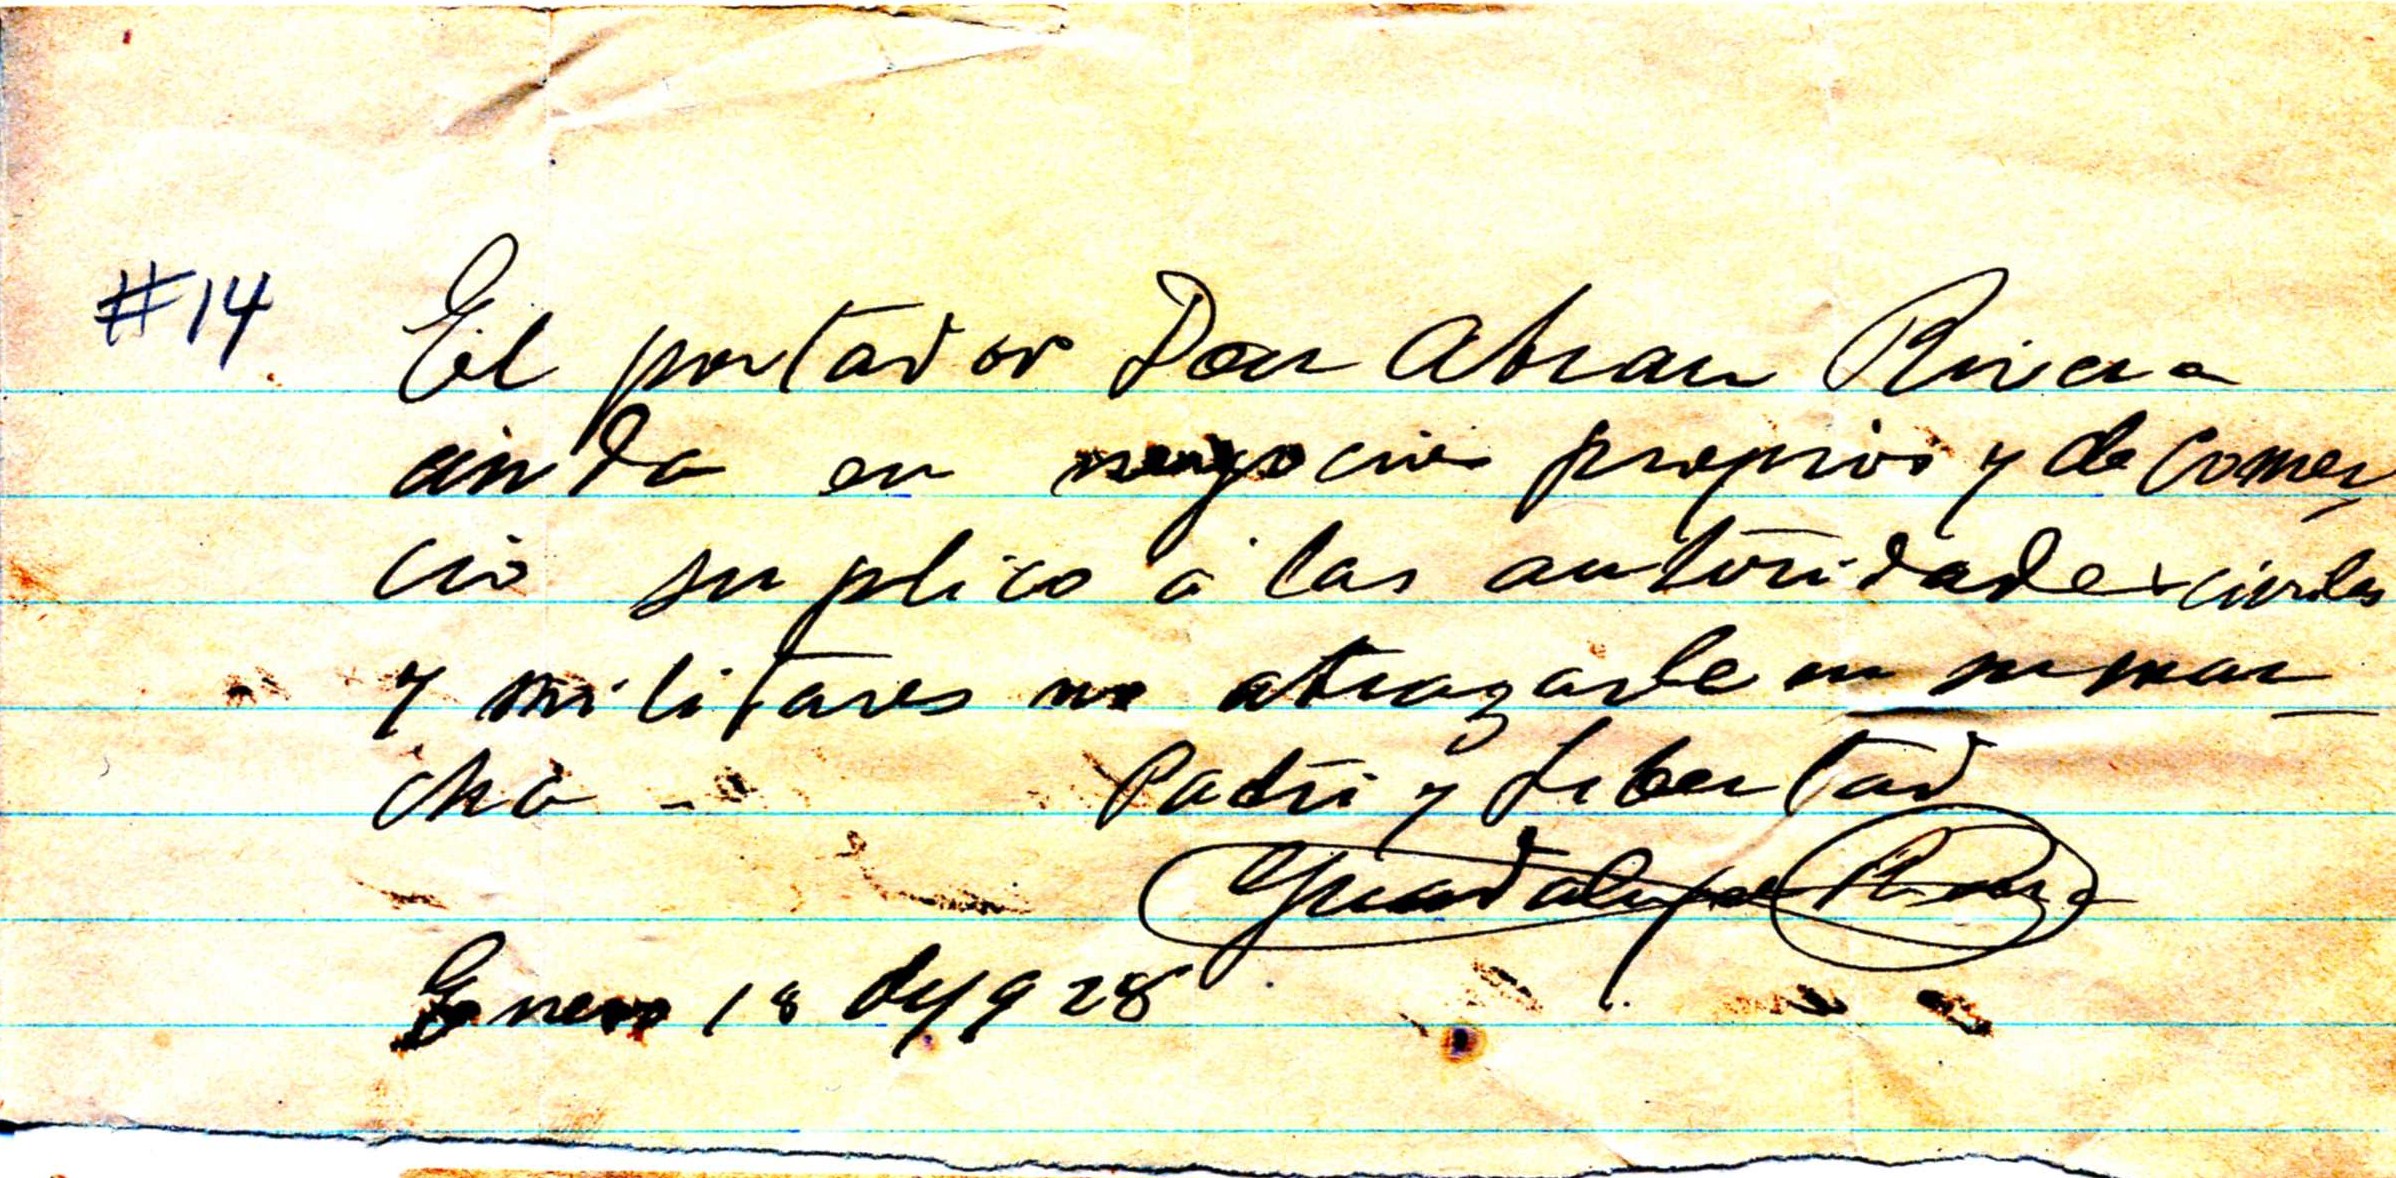 #14 El portador Don Abran Rivera
anda en negocios propios y de comer
cio suplico á las autoridades civiles
y militares no atrazarle en su mar
cha - Patri y Libertad
Guadalupe
Enero 18 dy 928